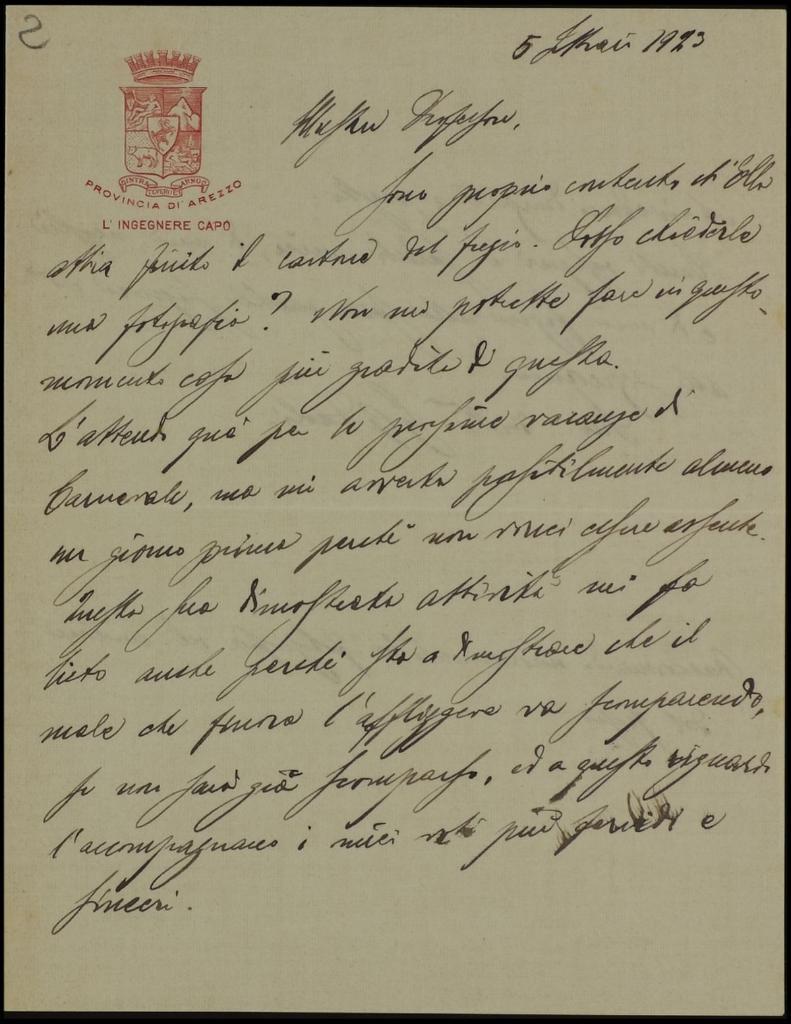 5 1923
PROVINCIA DI AREZZO
L'INGEGNERE CAPO
Professore,
Sono proprio contento ch'Ella
abbia finito il cartone del fregio. Posso chiederle
una fotografia? Non mi potrebbe fare in questo
momento cosa più gradita di questa.
L'attendo qua per le prossime vacanze di
Carnevale, ma mi avverta possibilmente almeno
un giorno prima perché non vorrei essere assente.
Questa sua dimostrata attività mi fa
lieto anche perché sta a dimostrare che il
male che finora l'affliggeva va scomparendo,
se non sarà già scomparso, ed a questo riguardo
l'accompagnano i miei voti più fervidi e
sinceri.